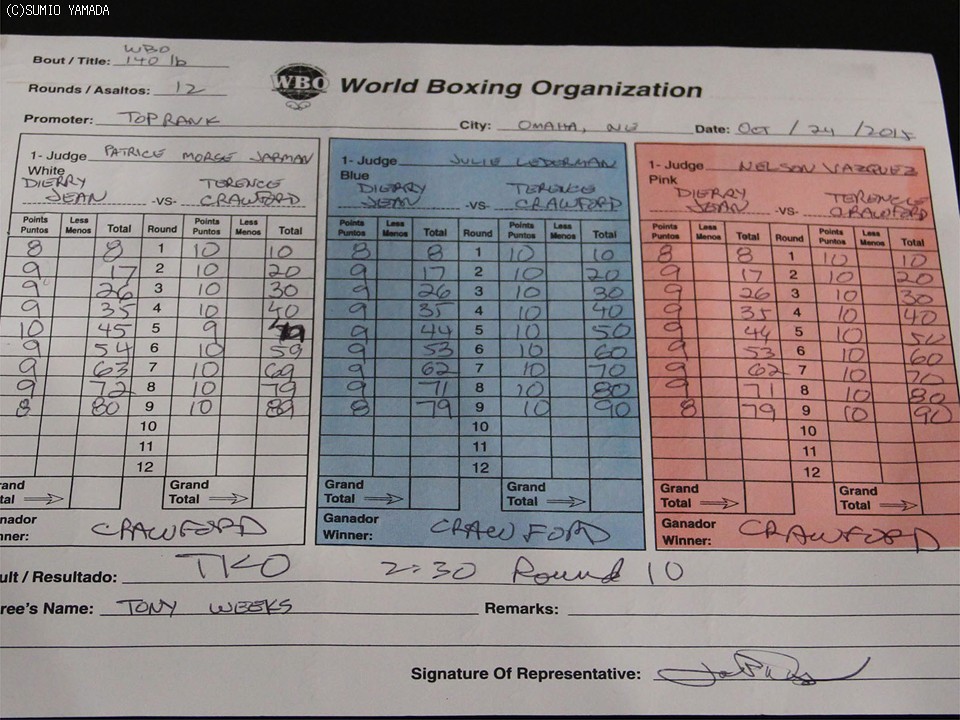 (C)SUMIO YAMADA
Bout / Title: WBO 140 lb
Rounds / Asaltos: 12
WBO World Boxing Organization
Promoter: TOP RANK City: OMAHA, NE Date: OCT / 24 / 2015
1- Judge PATRICE MORSE JARMAN
White
DIERRY JEAN -VS- TERENCE CRAWFORD
Points Puntos Less Menos Total Round Points Puntos Less Menos Total
8 8 1 10 10
9 17 2 10 20
9 26 3 10 30
9 35 4 10 40
10 45 5 9 49
9 54 6 10 59
9 63 7 10 69
9 72 8 10 79
8 80 9 10 89
10
11
12
Grand Total Grand Total
anador
ner: CRAWFORD
1- Judge JULIE LEDERMAN
Blue
DIERRY JEAN -VS- TERENCE CRAWFORD
Points Puntos Less Menos Total Round Points Puntos Less Menos Total
8 8 1 10 10
9 17 2 10 20
9 26 3 10 30
9 35 4 10 40
9 44 5 10 50
9 53 6 10 60
9 62 7 10 70
9 71 8 10 80
8 79 9 10 90
10
11
12
Grand Total Grand Total
Ganador
Winner: CRAWFORD
1- Judge NELSON VAZQUEZ
Pink
DIERRY JEAN -VS- TERENCE CRAWFORD
Points Puntos Less Menos Total Round Points Puntos Less Menos Total
8 8 1 10 10
9 17 2 10 20
9 26 3 10 30
9 35 4 10 40
9 44 5 10 50
9 53 6 10 60
9 62 7 10 70
9 71 8 10 80
8 79 9 10 90
10
11
12
Grand Total Grand Total
Ganador
Winner: CRAWFORD
ult / Resultado: TKO 2:30 Round 10
ree's Name: TONY WEEKS Remarks:
Signature Of Representative: